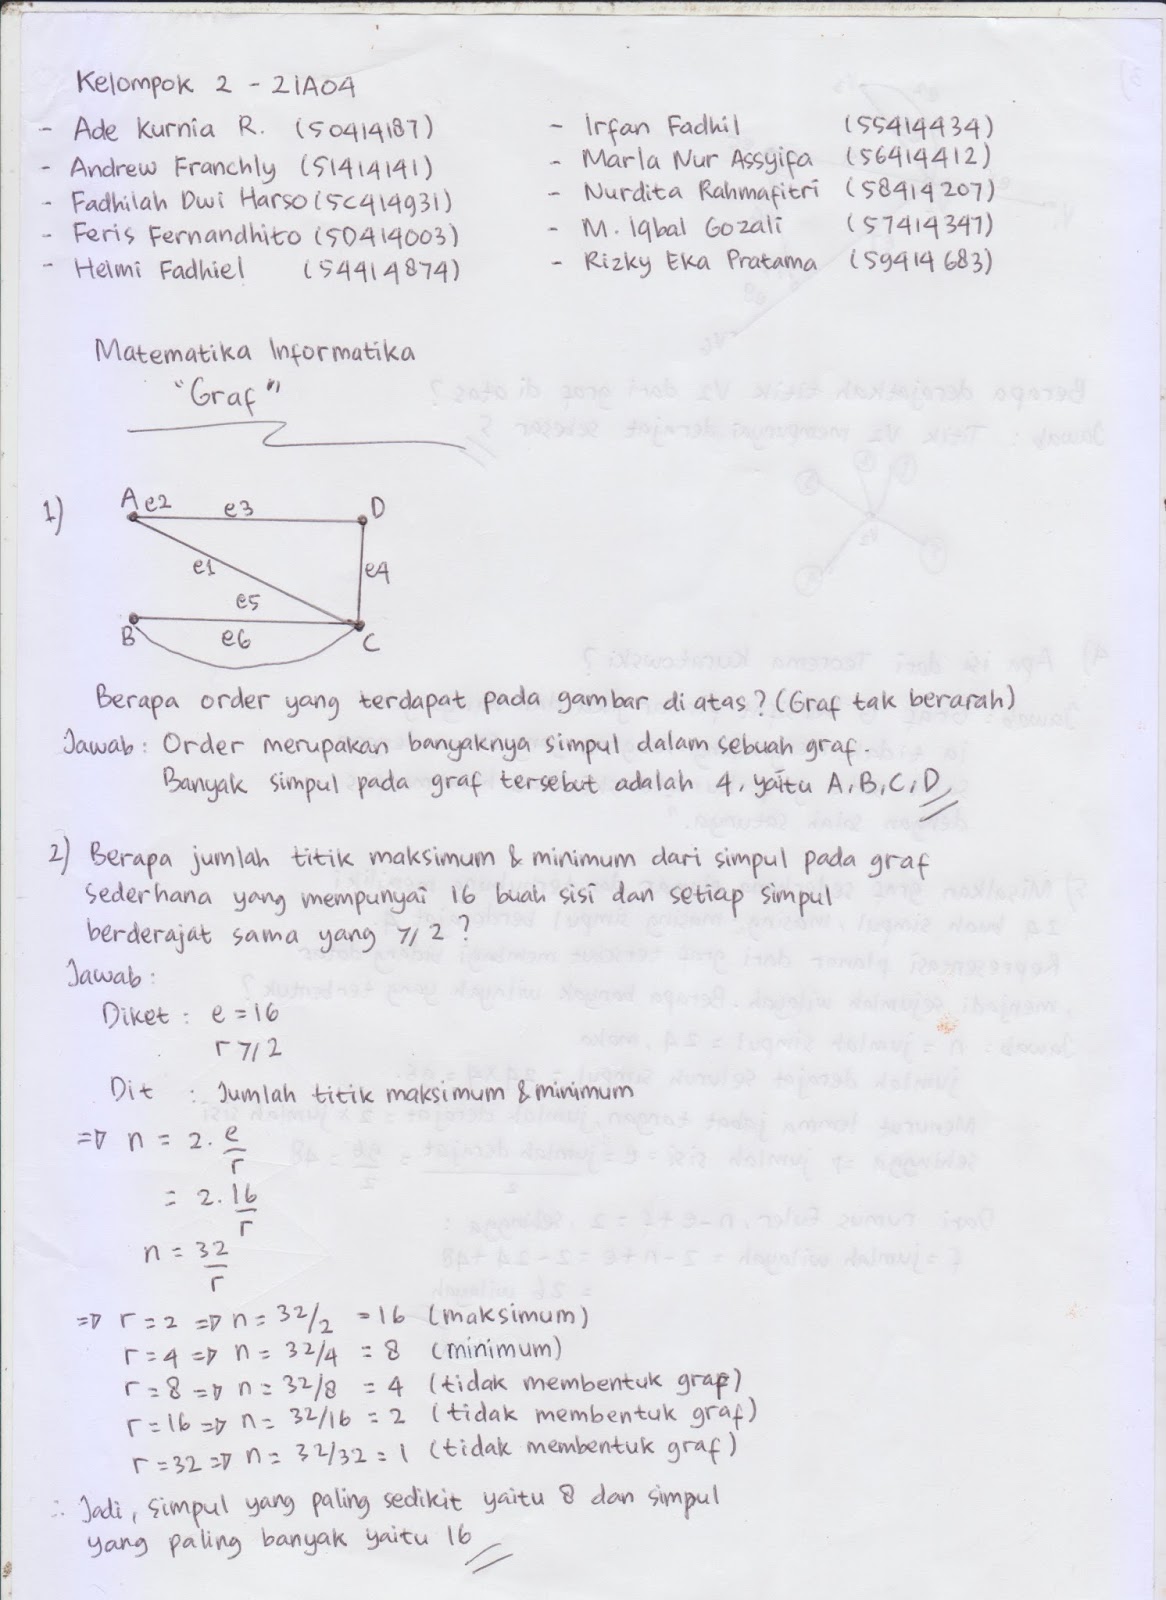 Kelompok 2 - 2IA04
- Ade Kurnia R. (50414187)
- Andrew Franchly (51414141)
- Fadhilah Dwi Harso (5C414931)
- Feris Fernandhito (5D414003)
- Helmi Fadhiel (54414874)
- Irfan Fadhil (55414434)
- Marla Nur Assyifa (56414412)
- Nurdita Rahmafitri (58414207)
- M. Iqbal Gozali (57414347)
- Rizky Eka Pratama (59414683)
Matematika Informatika
"Graf"
1)
A e2 e3 D
e1 e4
e5
B e6 C
Berapa order yang terdapat pada gambar di atas? (Graf tak berarah)
Jawab : Order merupakan banyaknya simpul dalam sebuah graf.
Banyak simpul pada graf tersebut adalah 4, yaitu A, B, C, D
2) Berapa jumlah titik maksimum & minimum dari simpul pada graf
sederhana yang mempunyai 16 buah sisi dan setiap simpul
berderajat sama yang ≥ 2 ?
Jawab :
Diket : e = 16
r ≥ 2
Dit : Jumlah titik maksimum & minimum
=> n = 2 . e/r
= 2 . 16/r
n = 32/r
=> r = 2 => n = 32/2 = 16 (maksimum)
r = 4 => n = 32/4 = 8 (minimum)
r = 8 => n = 32/8 = 4 (tidak membentuk graf)
r = 16 => n = 32/16 = 2 (tidak membentuk graf)
r = 32 => n = 32/32 = 1 (tidak membentuk graf)
∴ Jadi, simpul yang paling sedikit yaitu 8 dan simpul
yang paling banyak yaitu 16